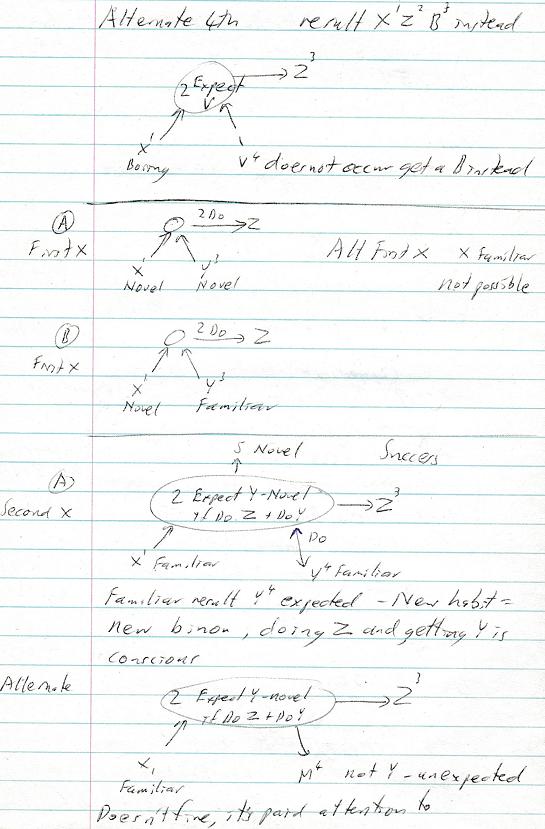 Alternate 4th result X¹ Z² B³ instead
Z³
2 Expect
Y
X¹
Boring
Y⁴ does not occur get a B instead
A
First X
2 Do Z
X¹ Y³
Novel Novel
All First X X Familiar
not possible
B
First X
2 Do Z
X¹ Y³
Novel Familiar
5 Novel Success
A
Second X
2 Expect Y-Novel
if Do Z + Do Y
Z³
Do
X¹ Familiar
Y⁴ Familiar
Familiar result Y⁴ expected - New habit =
new binon, doing Z and getting Y is
conscious
Alternate
2 Expect Y-novel
if Do Z + Do Y
Z³
X₁
Familiar
M⁴ not Y - unexpected
Doesn't fire, it's paid attention to